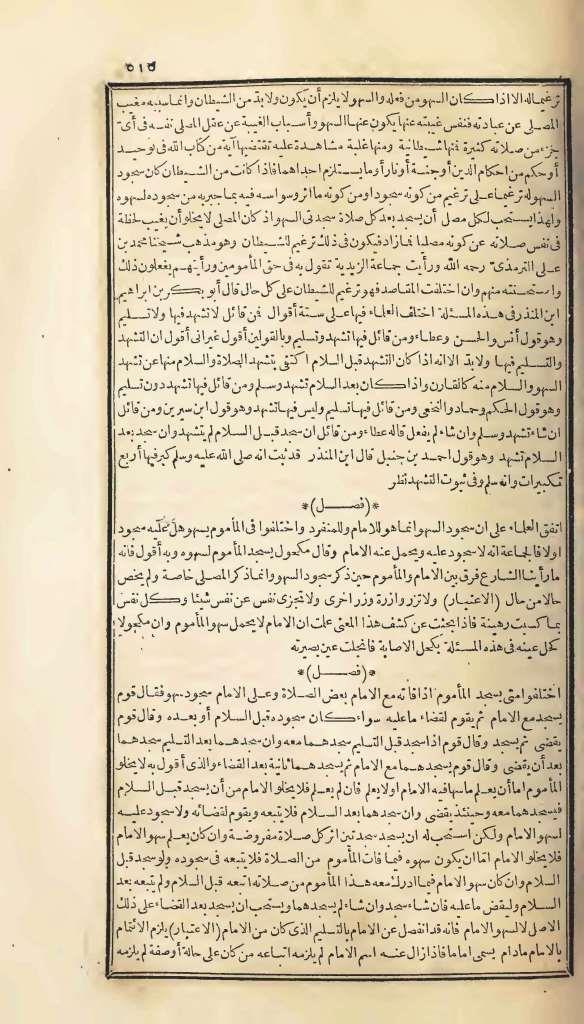 ٥١٥
ترغيما له الا اذا كان السهو من فعله والسهو لا يلزم أن يكون ولا بد من الشيطان وانما سببه مغيب
المصلى عن عبادته فنفس غيبته عنها يكون عنها السهو وأسباب الغيبة عن عقل المصلى نفسه فى أى
جزء من صلاته كثيرة فمنها شيطانية ومنها غلبة مشاهدة عليه تقتضيها آية من كتاب الله فى توحيد
أو حكم من احكام الدين أو جنة أو نار أو ما يستلزم احداهما فاذا كانت من الشيطان كان سجود
السهو له ترغيما على ترغيم من كونه سجودا ومن كونه ما اثر وسواسه فيه بما جبر به من سجوده لسهوه
ولهذا يستحب لكل مصل أن يسجد بعد كل صلاة سجدتى السهو اذ كان المصلى لا يخلو أن يغيب لحظة
فى نفس صلاته عن كونه مصليا فما زاد فيكون فى ذلك ترغيم للشيطان وهو مذهب شيخنا محمد بن
على الترمذى رحمه الله ورأيت جماعة الزيدية تقول به فى حق المأمومين ورأيتهم يفعلون ذلك
واستحسنته منهم وان اختلفت المقاصد فهو ترغيم للشيطان على كل حال قال أبو بكر بن ابراهيم
ابن المنذر فى هذه المسئلة اختلف العلماء فيها على ستة أقوال فمن قائل لا تشهد فيها ولا تسليم
وهو قول أنس والحسن وعطاء ومن قائل فيها تشهد وتسليم وبالقولين أقول غير انى أقول ان التشهد
والتسليم فيها ولا بد الا انه اذا كان التشهد قبل السلام اكتفى بتشهد الصلاة والسلام منها عن تشهد
السهو والسلام منه كالقارن واذا كان بعد السلام تشهد وسلم ومن قائل فيها تشهد دون تسليم
وهو قول الحكم وحماد والنخعى ومن قائل فيها تسليم وليس فيها تشهد وهو قول ابن سيرين ومن قائل
ان شاء تشهد وسلم وان شاء لم يفعل قاله عطاء ومن قائل ان سجد قبل السلام لم يتشهد وان سجد بعد
السلام تشهد وهو قول احمد بن حنبل قال ابن المنذر قد ثبت انه صلى الله عليه وسلم كبر فيها أربع
تكبيرات وانه سلم وفى ثبوت التشهد نظر
*(فصل)*
اتفق العلماء على ان سجود السهو انما هو للامام وللمنفرد واختلفوا فى المأموم يسهو هل عليه سجود
اولا فالجماعة انه لا سجود عليه ويحمل عنه الامام وقال مكحول يسجد المأموم لسهوه وبه أقول فانه
ما رأينا الشارع فرق بين الامام والمأموم حين ذكر سجود السهو وانما ذكر المصلى خاصة ولم يخص
حالا من حال (الاعتبار) ولا تزر وازرة وزر اخرى ولا تجزى نفس عن نفس شيئا وكل نفس
بما كسبت رهينة فاذا بحثت عن كشف هذا المعنى علمت ان الامام لا يحمل سهو المأموم وان مكحولا
كحل عينه فى هذه المسئلة بكحل الاصابة فانجلت عين بصيرته
*(فصل)*
اختلفوا متى يسجد المأموم اذا فاته مع الامام بعض الصلاة وعلى الامام سجود سهو فقال قوم
يسجد مع الامام ثم يقوم لقضاء ما عليه سواء كان سجوده قبل السلام أو بعده وقال قوم
يقضى ثم يسجد وقال قوم اذا سجد قبل التسليم سجدهما معه وان سجدهما بعد التسليم سجدهما
بعد أن يقضى وقال قوم يسجدهما مع الامام ثم يسجدهما ثانية بعد القضاء والذى أقول به لا يخلو
المأموم اما أن يعلم ما سها فيه الامام اولا يعلم فان لم يعلم فلا يخلو الامام من أن يسجد قبل السلام
فيسجدهما معه وحينئذ يقضى وان سجدهما بعد السلام فلا يتبعه ويقوم لقضائه ولا سجود عليه
لسهو الامام ولكن استحب له ان يسجد سجدتين اثر كل صلاة مفروضة وان كان يعلم سهو الامام
فلا يخلو الامام اما ان يكون سهوه فيما فات المأموم من الصلاة فلا يتبعه فى سجوده ولو سجد قبل
السلام وان كان سهو الامام فيما ادرك معه هذا المأموم من صلاته اتبعه قبل السلام ولم يتبعه بعد
السلام وليقض ما عليه فان شاء سجد وان شاء لم يسجدهما ويستحب ان يسجد بعد القضاء على ذلك
الاصل لا لسهو الامام فانه قد انفصل عن الامام بالتسليم الذى كان من الامام (الاعتبار) يلزم الائتمام
بالامام ما دام يسمى اماما فاذا زال عنه اسم الامام لم يلزمه اتباعه من كان على حالة أو صفة لم يلزمه